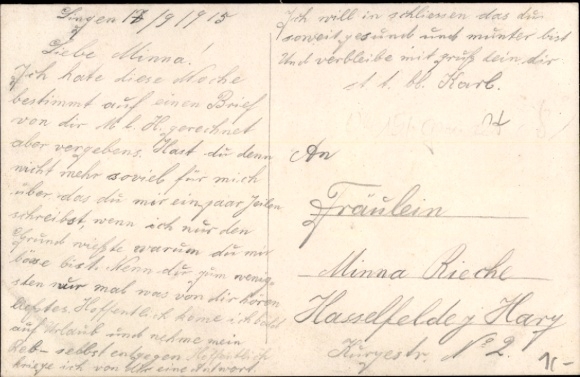 Lingen 17/9/1915
Liebe Minna!
Ich hate diese Woche
bestimmt auf einen Brief
von dir M. l. H. gerechnet
aber vergebens. Hast du denn
nicht mehr soviel für mich
über das du mir ein paar Zeilen
schreibst, wenn ich nur den
Grund wüßte warum du mir
böse bist. Wenn du zum wenig-
sten nur mal was von dir hören
ließtes. Hoffentlich kome ich bald
auf Urlaub und nehme mein
Leb- selbst entgegen Hoffentlich
kriege ich von Ihr eine Antwort.
Ich will in schliessen das du
soweit gesund und munter bist
Und verbleibe mit gruß dein dir
Karl.
An
Fräulein
Minna Rieche
Hasselfelde j Harz
Kurzestr. No 2.